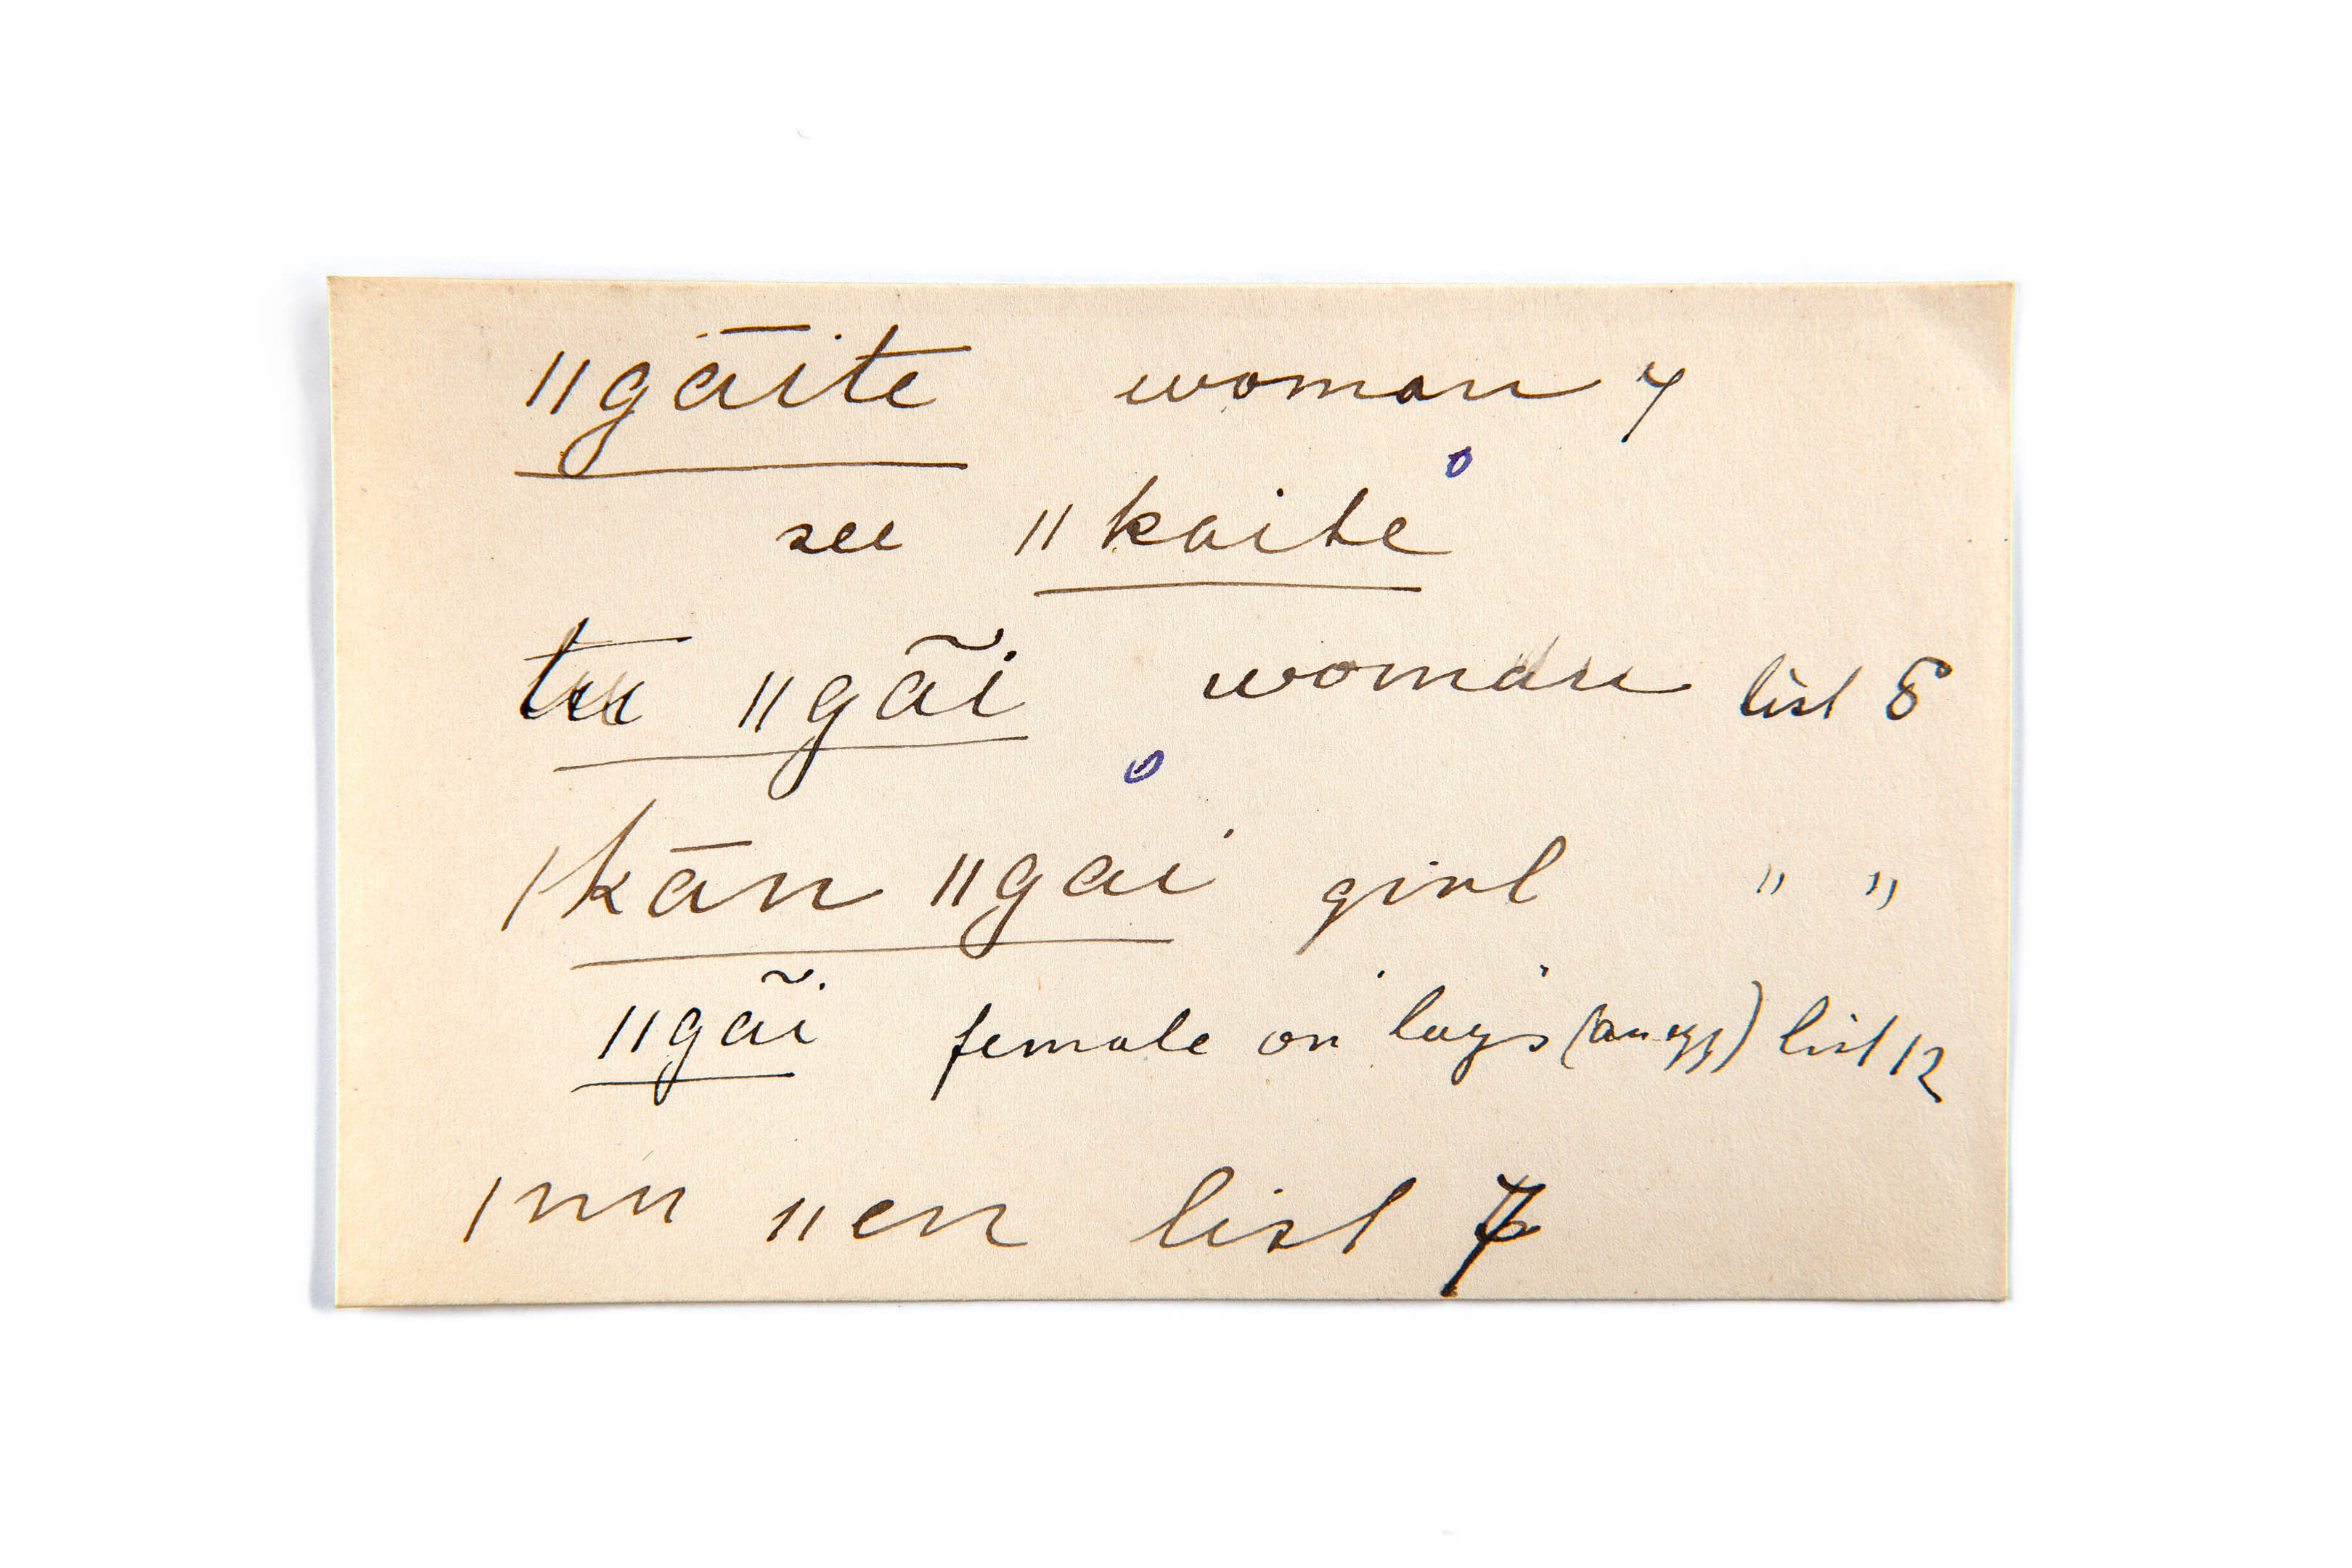 ǁgāite woman 7
see ǁkaite
tu ǁgãi woman list 8
ǀkān ǁgai girl " "
ǁgãi female on lays (an egg) list 12
ǀnu ǁen list 7